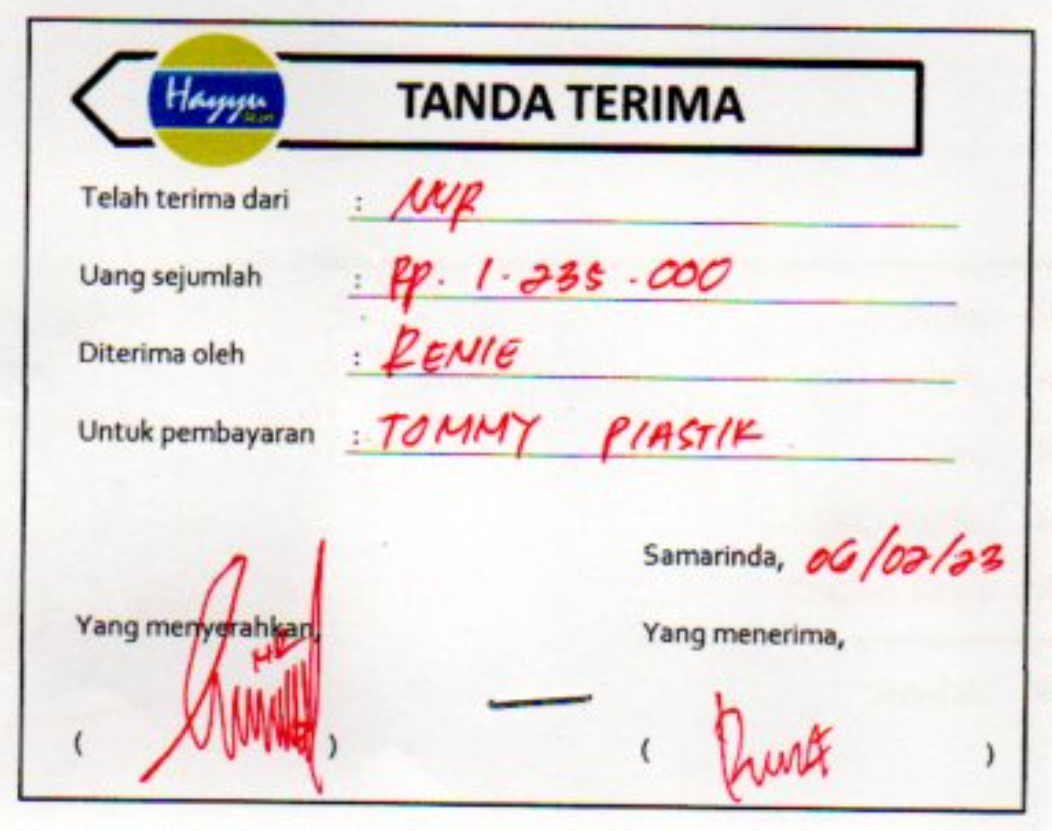 Hayyu
TANDA TERIMA
Telah terima dari : NUR
Uang sejumlah : Rp. 1.235.000
Diterima oleh : RENIE
Untuk pembayaran : TOMMY PLASTIK
Samarinda, 06/02/23
Yang menyerahkan,
Yang menerima,
( )
( )